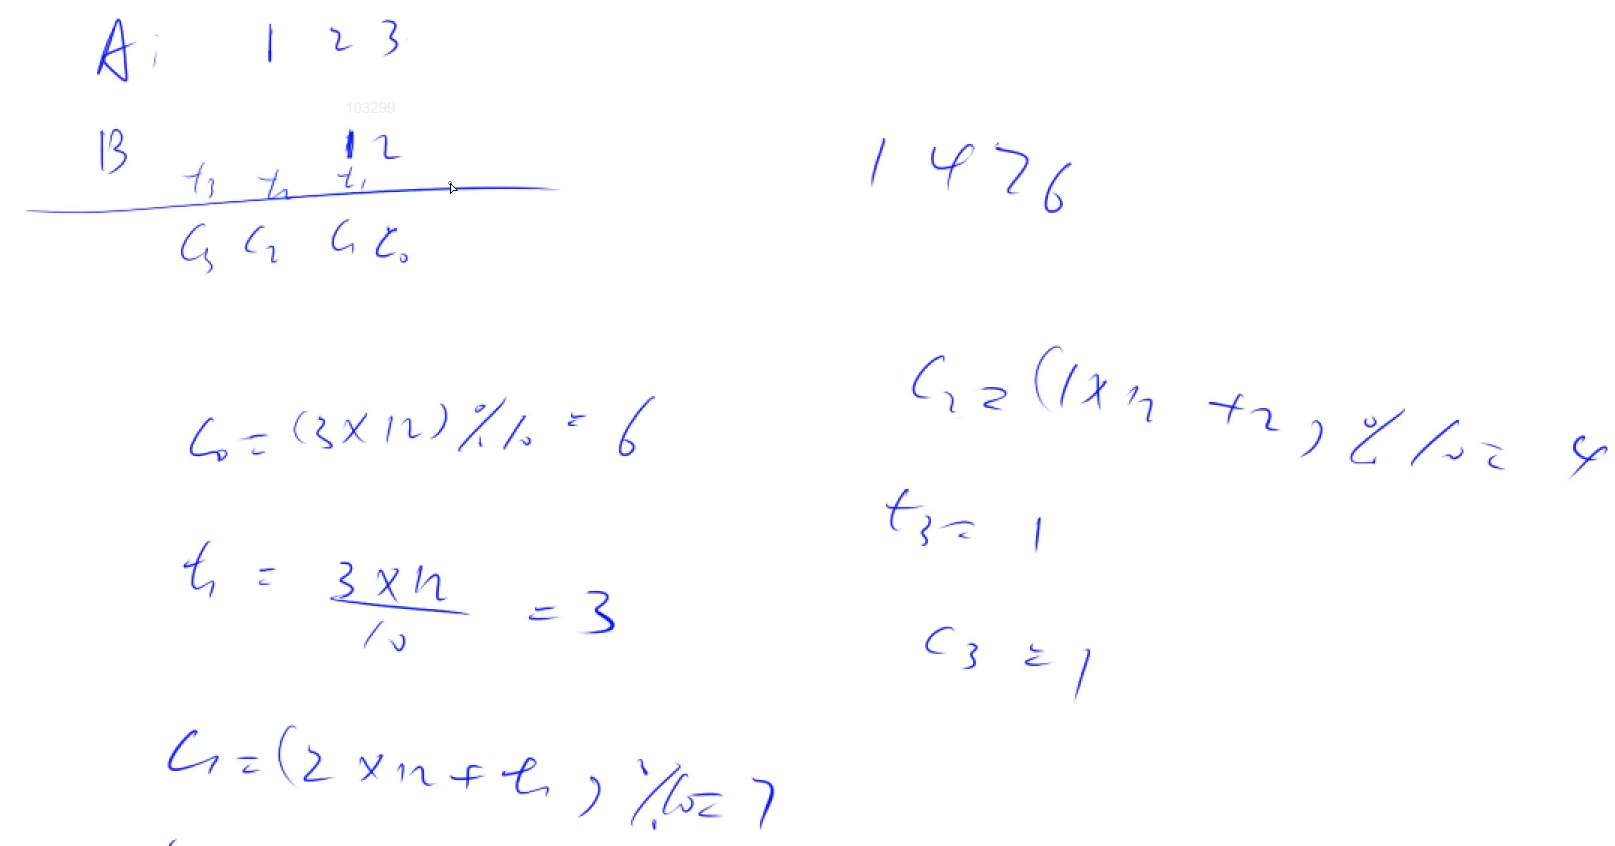 A: 1 2 3
103299
B 12
t3 t2 t1
C3 C2 C1 C0
1476
C0 = (3×12)%10 = 6
t1 = 3×12/10 = 3
C1 = (2×12+t1)%10=7
C2 = (1×12+2)%10= 4
t3= 1
C3 =1